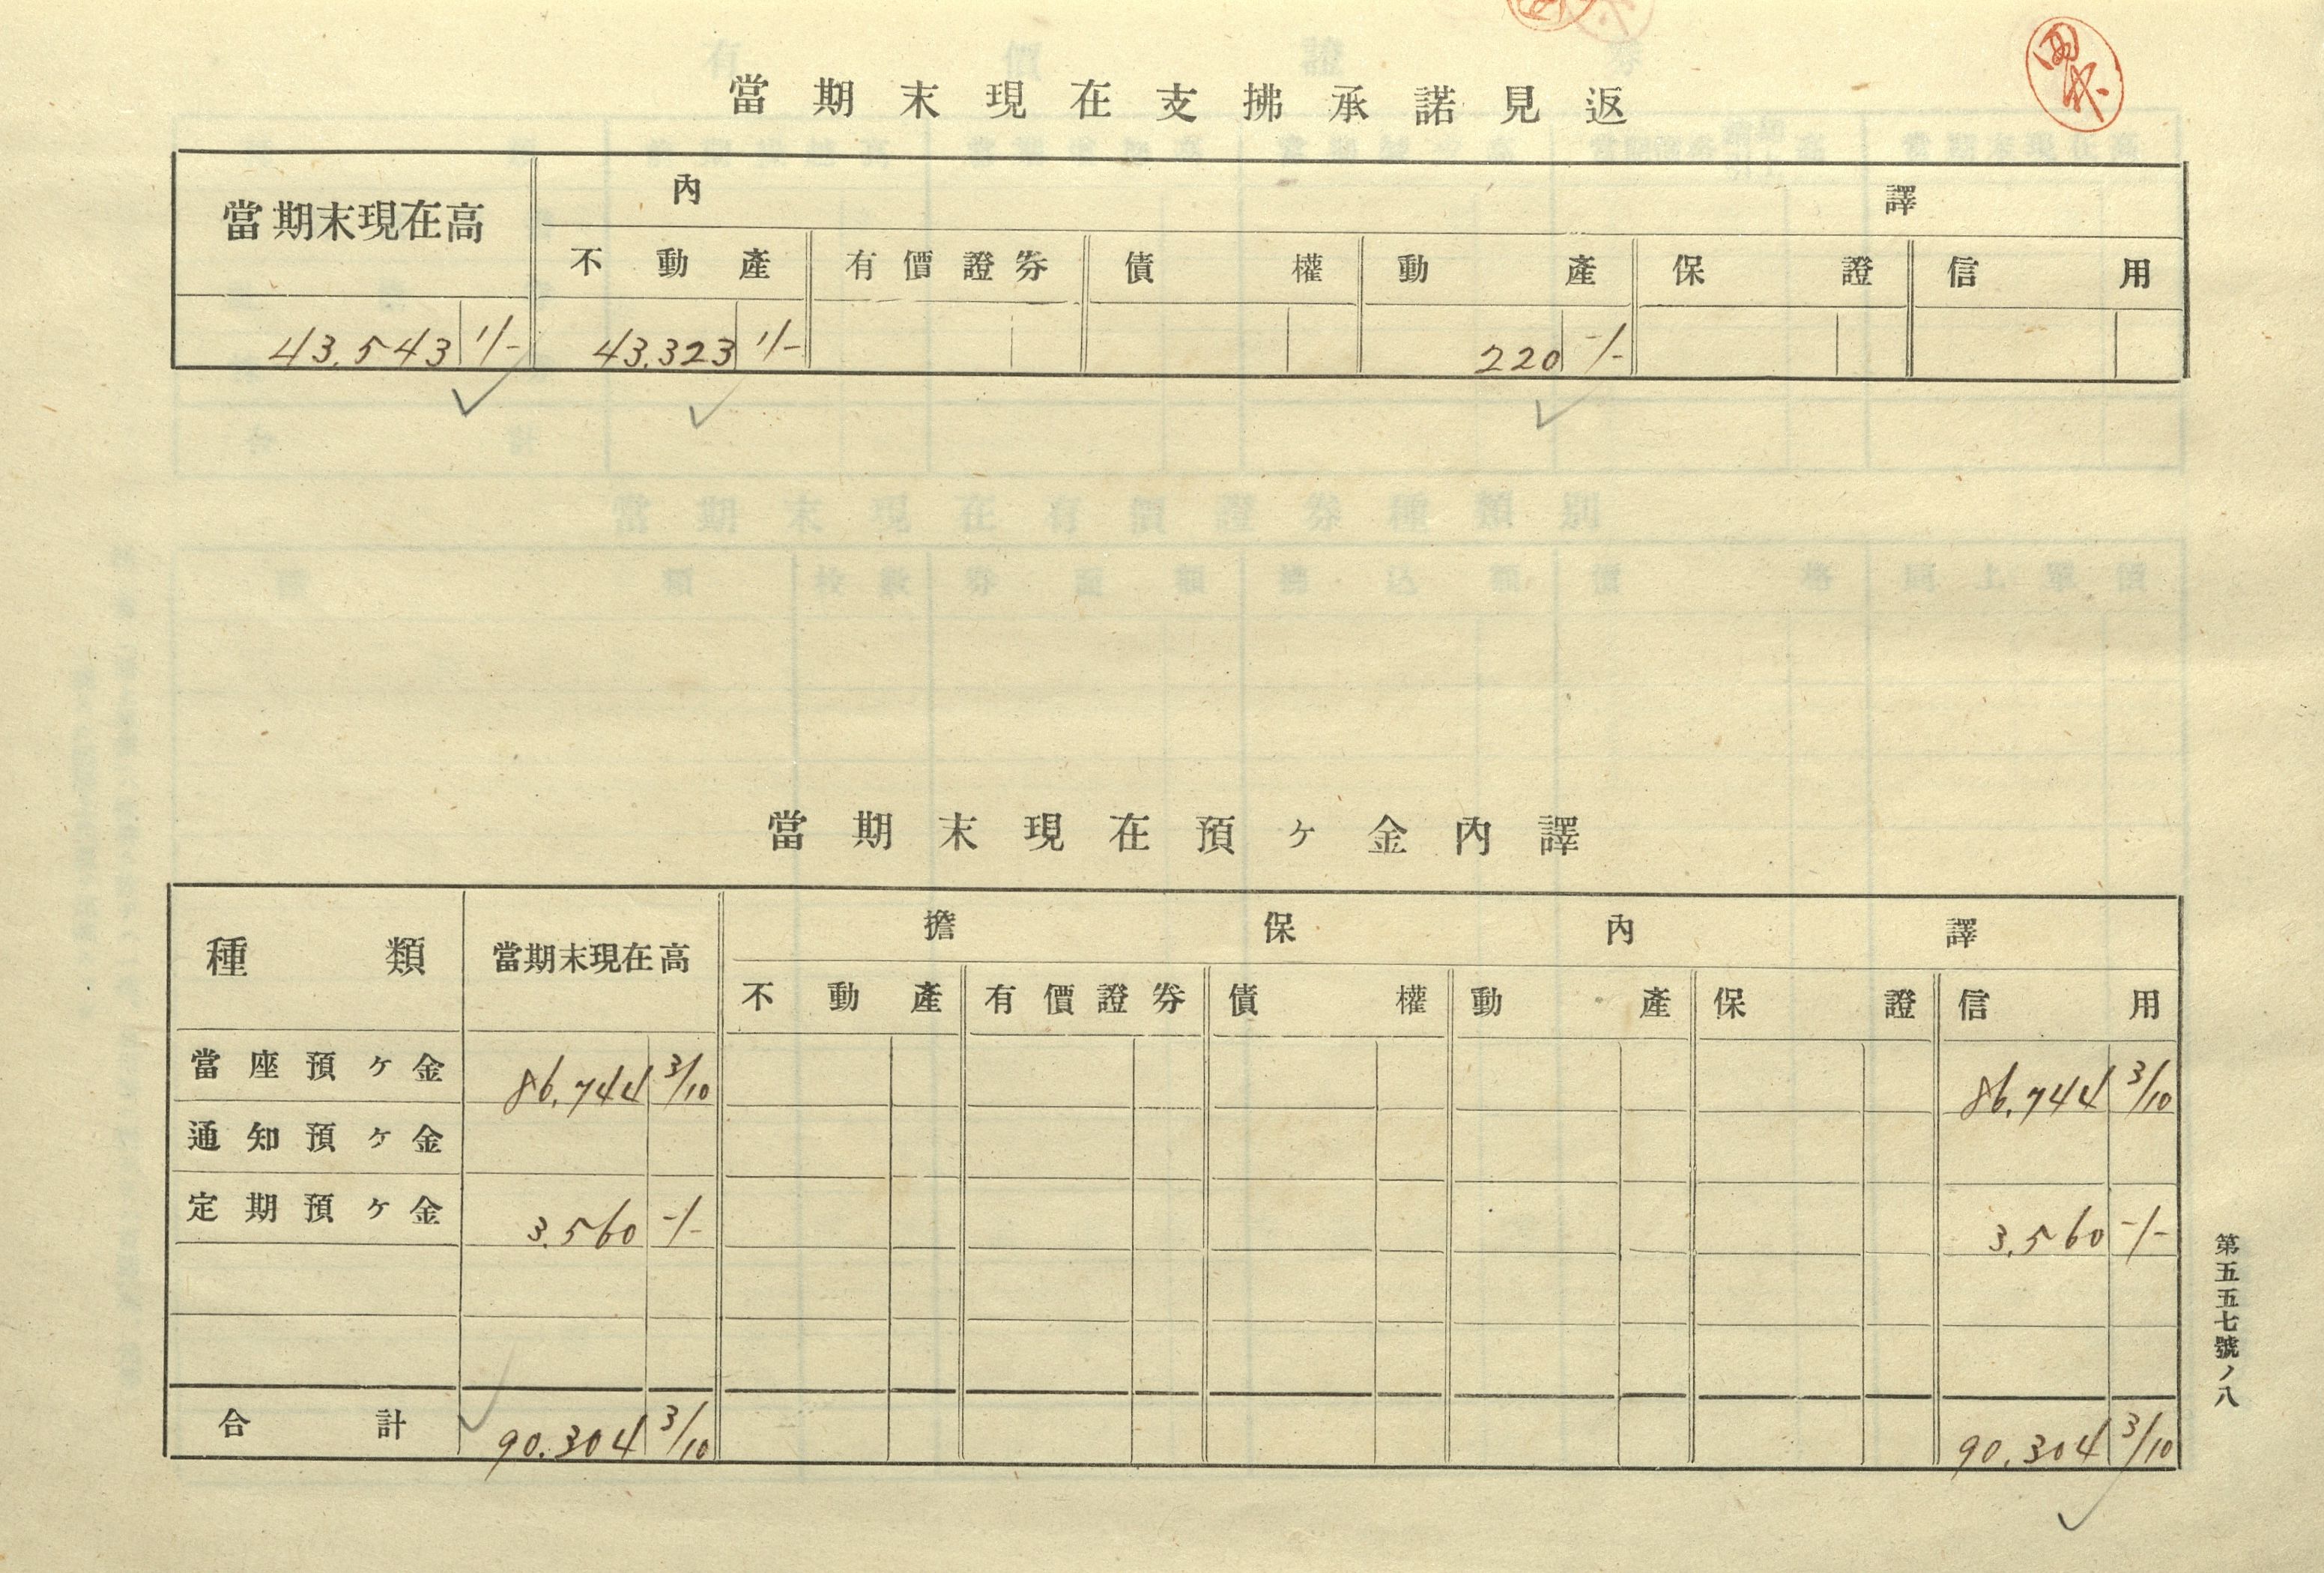 當期末現在支拂承諾見返
當期末現在高 內譯
不動產 有價證券 債權 動產 保證 信用
43.543 1/- 43.323 1/- 220 -/-
當期末現在預ヶ金內譯
種類 當期末現在高 擔保內譯
不動產 有價證券 債權 動產 保證 信用
當座預ヶ金 86.744 3/10 86.744 3/10
通知預ヶ金
定期預ヶ金 3.560 -/- 3.560 -/-
合計 90.304 3/10 90.304 3/10
第五五七號ノ八